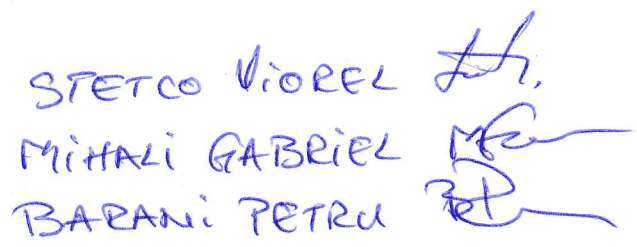 STETCO VIOREL
MIHALI GABRIEL
BARANI PETRU